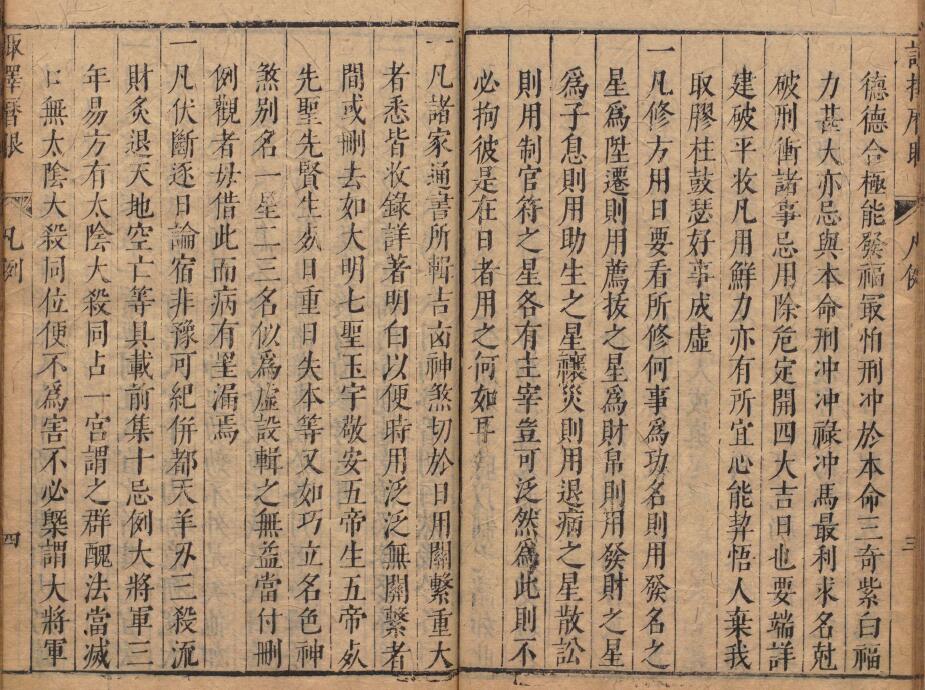 德德合極能發福最怕刑冲於本命三奇紫白福
力甚大亦忌與本命刑冲冲祿冲馬最利求名尅
破刑衝諸事忌用除危定開四大吉日也要端詳
建破平收凡用鮮力亦有所宜心能契悟人棄我
取膠柱鼓瑟好事成虛
一凡修方用日要看所修何事爲功名則用發名之
星爲陞遷則用薦拔之星爲財帛則用發財之星
爲子息則用助生之星禳災則用退病之星散訟
則用制官符之星各有主宰豈可泛然爲此則不
必拘彼是在日者用之何如耳
凡例
三
一凡諸家通書所輯吉凶神煞切於日用關繫重大
者悉皆收錄詳著明白以便時用泛泛無關繫者
間或刪去如大明七聖玉宇敬安五帝生五帝死
先聖先賢生死日重日失本等又如巧立名色神
煞别名一星二三名似爲虛設輯之無益當付刪
例觀者毋借此而病有罣漏焉
一凡伏斷逐日論宿非豫可紀併都天羊刃三殺流
財炙退天地空亡等具載前集十忌例大將軍三
年易方有太陰大殺同占一宮謂之群醜法當滅
無太陰大殺同位便不爲害不必槩謂大將軍
凡例
四